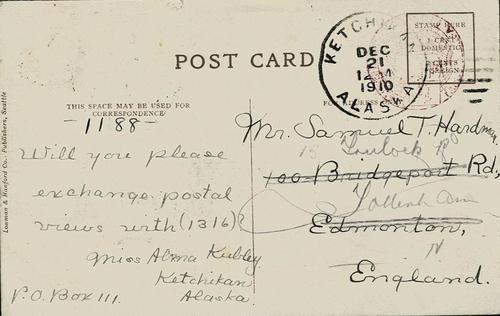 POST CARD
STAMP HERE
1 CENT
DOMESTIC
2 CENTS
FOREIGN
KETCHIKAN
DEC
21
1910
ALASKA
THIS SPACE MAY BE USED FOR
CORRESPONDENCE
-1188-
Will you please
exchange postal
views with (1316)?
Miss Alma Kubley
Ketchikan
Alaska
P.O. Box 111.
Mr. Samuel T. Hardman
100 Bridgeport Rd,
Edmonton,
N
England.
Lowman & Hanford Co. Publishers, Seattle